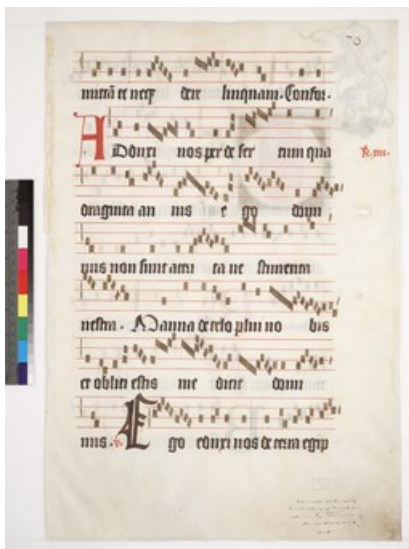 70
mittā et neq dere linquam. Confor.
Adduxi vos per de ser tum qua
draginta an nis e go domi
nus non sunt attri ta ve stimenta
vestra. Manna de celo plui vo bis
et obliti estis me dicit domi
nus. Ego eduxi vos de terra egip